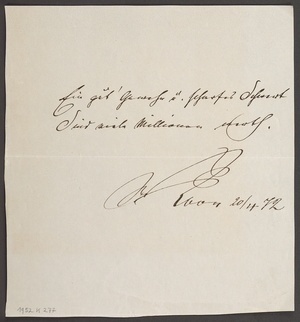 Ein gut' Gewehr u. scharfes Schwert
Sind viele Millionen werth.
v Roon 20/4 72